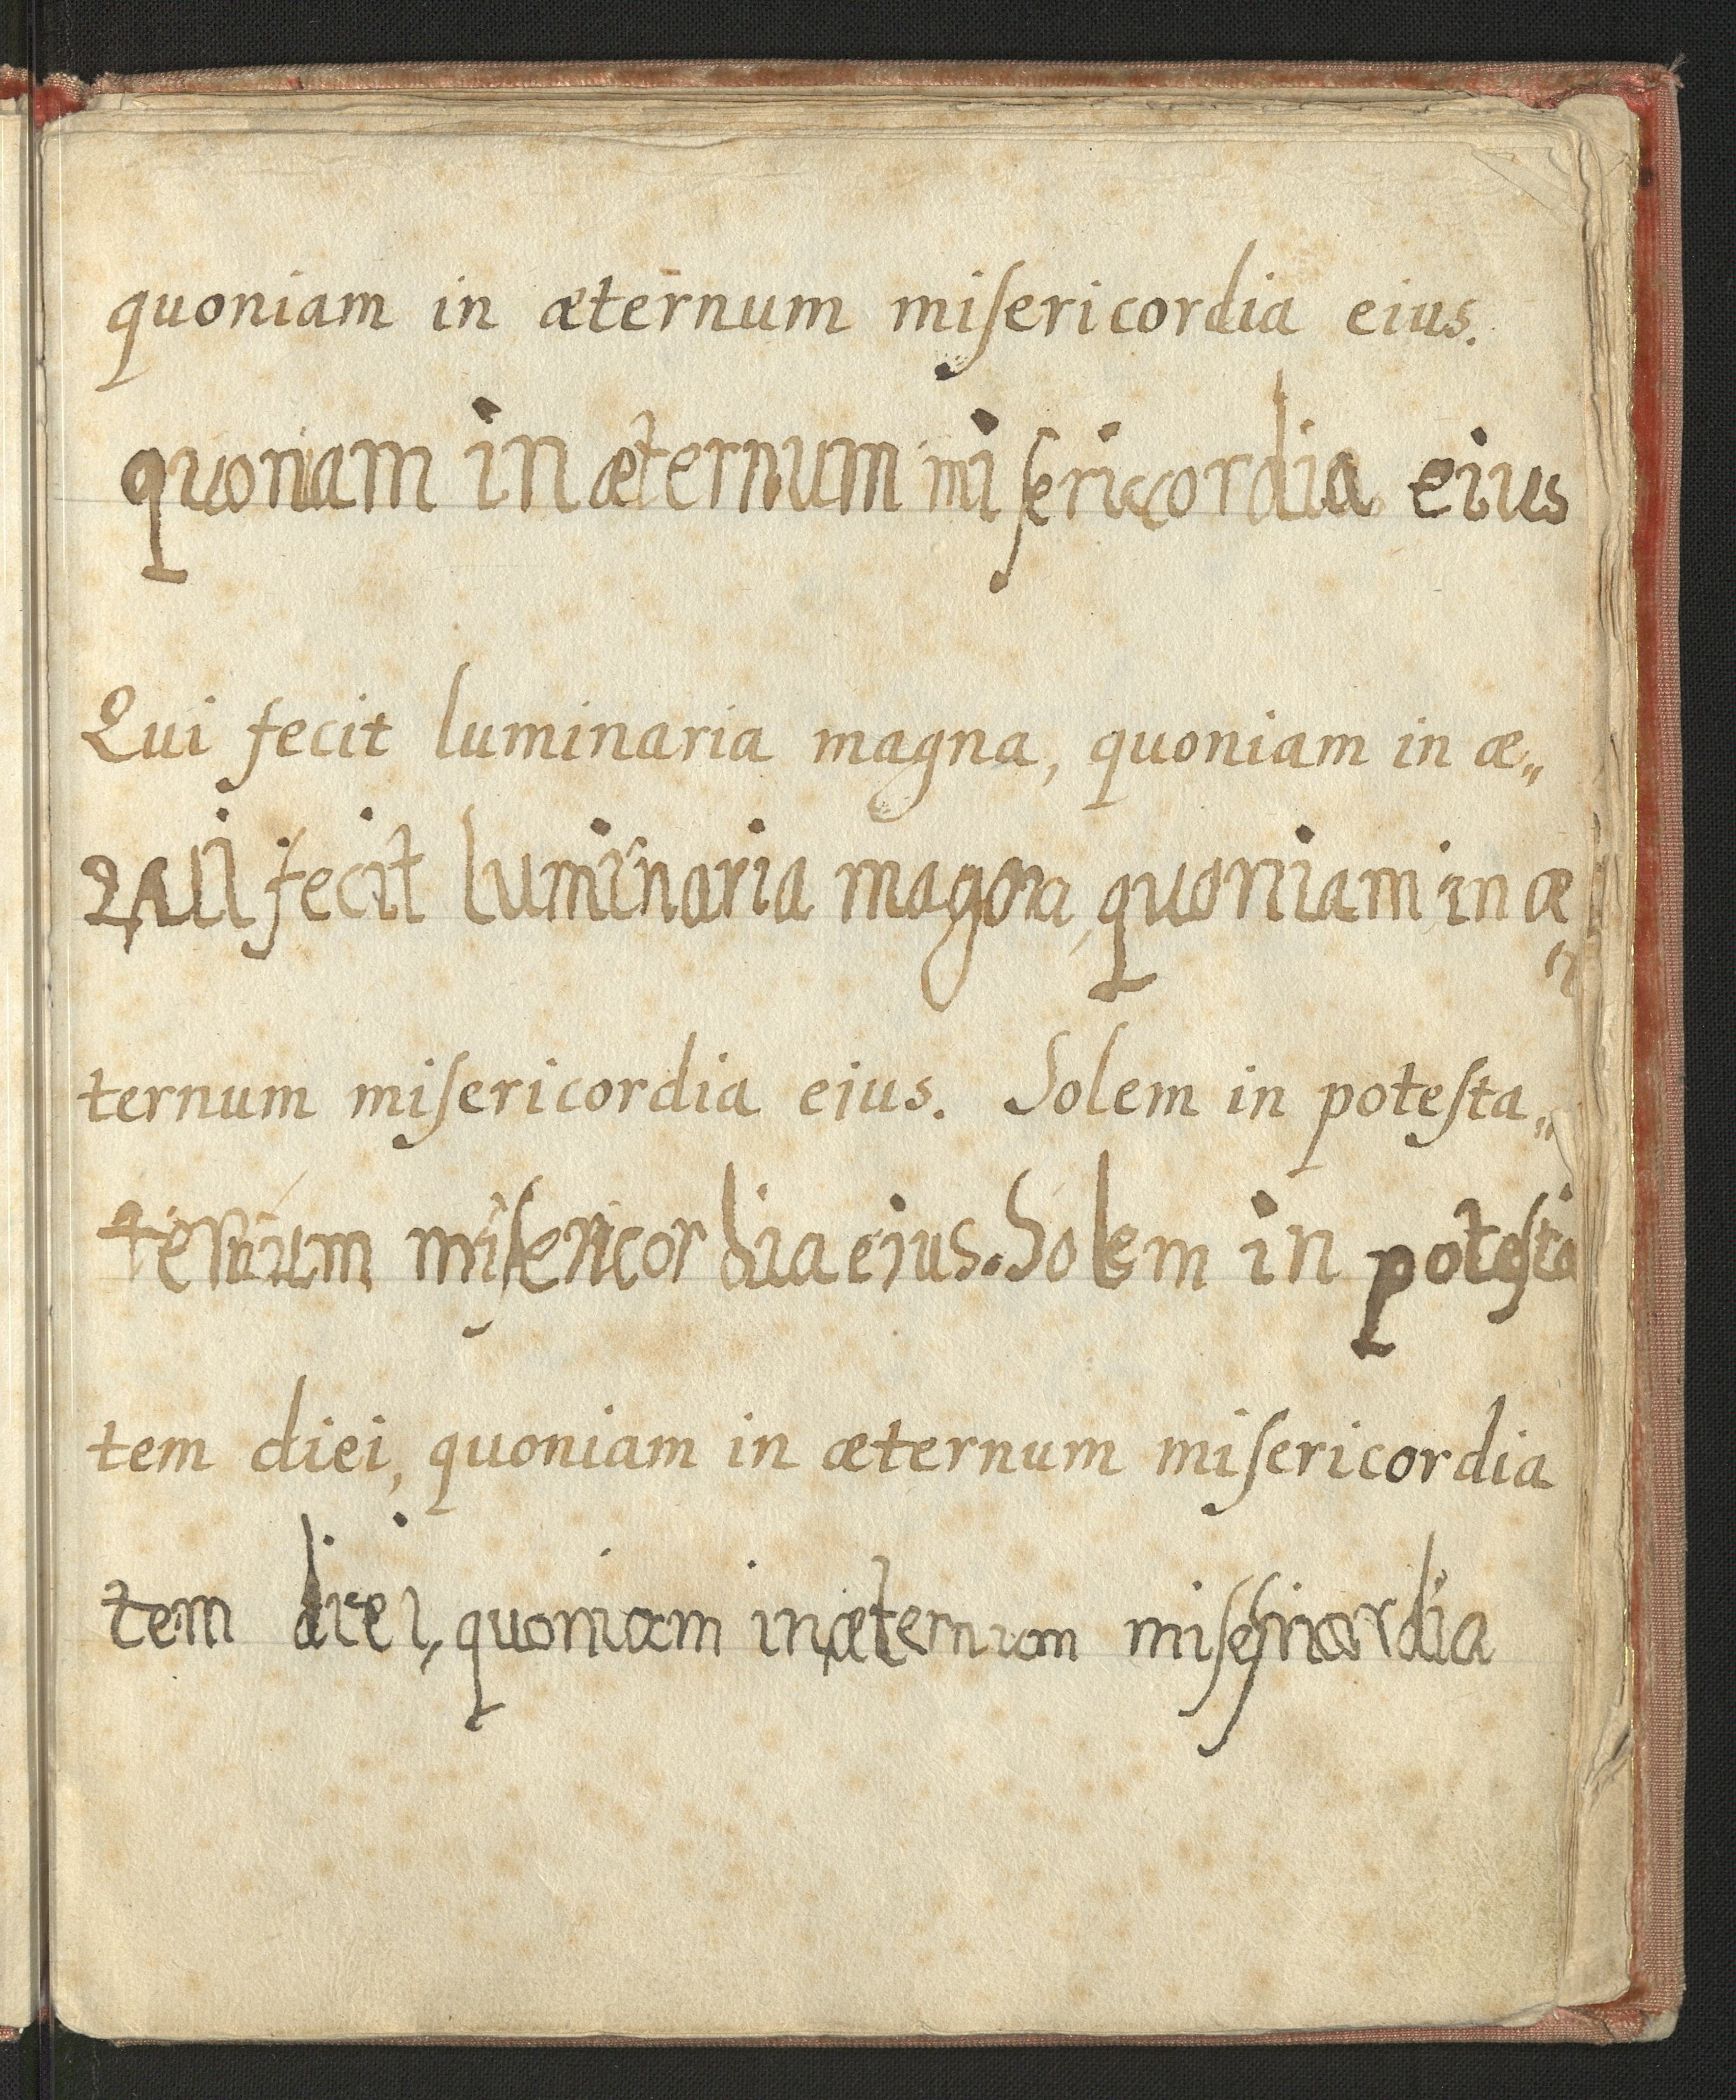 quoniam in æternum miſericordia eius.
quoniam in æternum miſericordia eius
Qui fecit luminaria magna, quoniam in æ„
Qui fecit luminaria magna, quoniam in æ„
ternum miſericordia eius. Solem in poteſta„
ternum miſericordia eius. Solem in poteſta
tem diei, quoniam in æternum miſericordia
tem diei, quoniam in æternum miſericordia